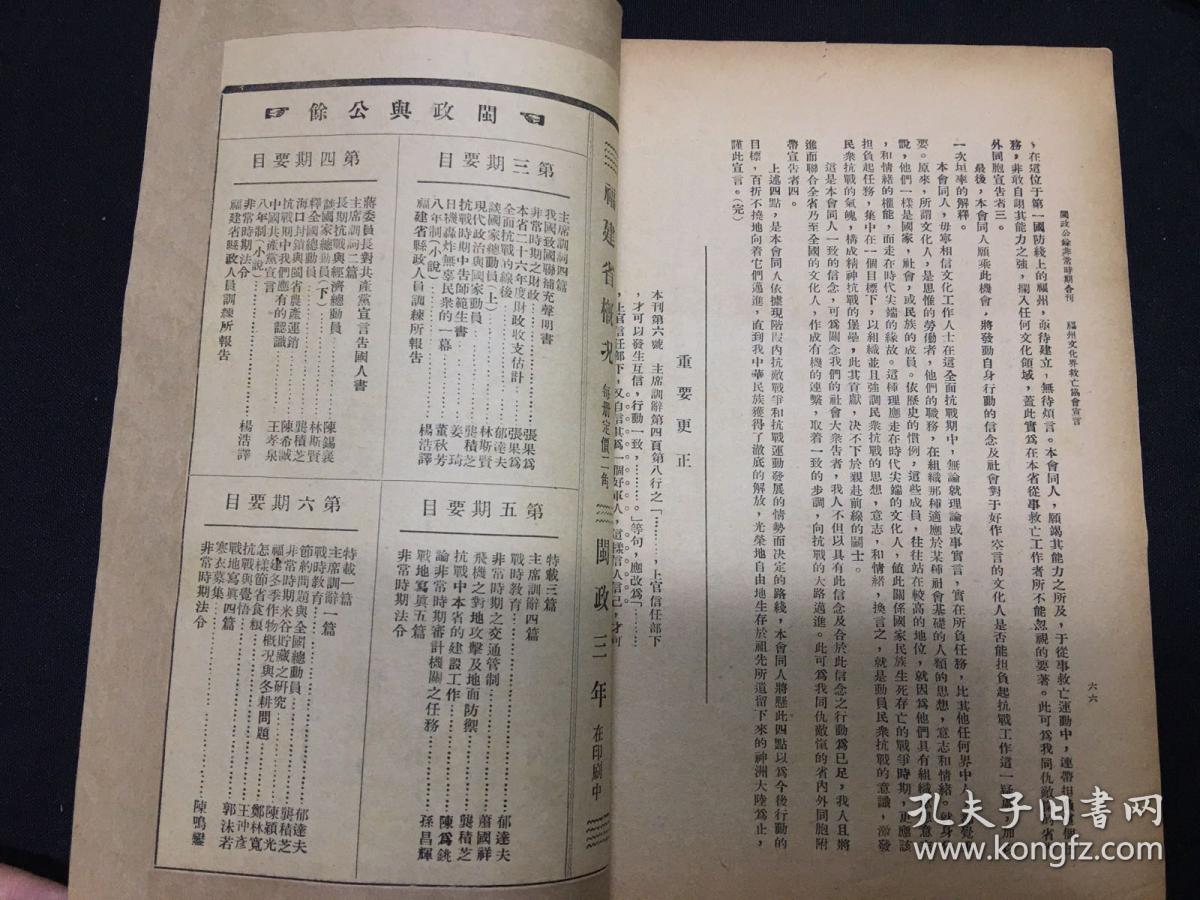 閩政公餘非常時期合刊　福州文化界救亡協會宣言
六六
，在這位于第一國防綫上的福州，亟待建立，無待煩言。本會同人，願竭其能力之所及，于從事救亡運動中，連帶担
務，非敢自詡其能力之強，攔入任何文化領域，蓋此實為在本省從事救亡工作者所不能忽視的要著。此可為我同仇敵
外同胞宣告者三。
最後，本會同人願乘此機會，將發動自身行動的信念及社會對于好作空言的文化人是否能担負起抗戰工作這一疑
一次坦率的解釋。
本會同人，毋寧相信文化工作人士在這全面抗戰期中，無論就理論或事實言，實在所負任務，比其他任何界中人
要。原來，所謂文化人，是思惟的勞働者，他們的職務，在組織那種適應於某種社會基礎的人類的思想，意志和情緒。
說，他們一樣是國家，社會，或民族的成員。依歷史的慣例，這些成員，往往站在較高的地位，就因為他們具有組織
，和情緒的權能，而走在時代尖端的緣故。這種理應走在時代尖端的文化人，值此關係國家民族生死存亡的戰爭時期，更應該
担負起任務，集中在一個目標下，以組織並且強調民衆抗戰的思想，意志，和情緒，換言之，就是動員民衆抗戰的意識，激發
民衆抗戰的氣魄，構成精神抗戰的堡壘，此其貢獻，决不下於親赴前線的鬪士。
這是本會同人一致的信念，可為關念我們的社會大衆告者，我人不但以具有此信念及合於此信念之行動為已足，我人且將
進而聯合全省乃至全國的文化人，作成有機的連繫，取着一致的步調，向抗戰的大路邁進。此可為我同仇敵愾的省內外同胞附
帶宣告者四。
上述四點，是本會同人依據現階段內抗敵戰爭和抗戰運動發展的情勢而决定的路綫，本會同人將懸此四點以為今後行動的
目標，百折不撓地向着它們邁進，直到我中華民族獲得了澈底的解放，光榮地自由地生存於祖先所遺留下來的神洲大陸為止，
謹此宣言。（完）
重要更正
本刊第六號　主席訓辭第四頁第八行之「………，上官信任部下
，才可以發生互信，行動一致，………。」等句，應改為「………
，上官信任部下，又自信其為一個好軍人，這樣信人信己，才可
福建省概況　每册定價二角
閩政三年　在印刷中
閩政與公餘
第三期要目
主席訓詞四篇
我國致國聯補充聲明書
非常時期之財政………張果為
本省二十六年度財政收支估計…張果為
全面抗戰的線後………郁達夫
談國家總動員（上）………林斯賢
現代政治與國家動員………龔積芝
抗戰時期中告師範生書………姜琦
日機轟炸無辜民衆的一幕………董秋芳
八年制（小說）………楊浩譯
福建省縣政人員訓練所報告
第四期要目
蔣委員長對共產黨宣言告國人書
主席訓詞二篇
長期抗戰與經濟總動員………陳錫襄
談國家總動員（下）………林斯賢
釋全國總動員………龔積芝
海口封鎖與閩省農產運銷………陳希誠
抗戰期中我們應有的認識………王孝泉
中國共產黨宣言
八年制（小說）………楊浩譯
非常時期法令
福建省縣政人員訓練所報告
第五期要目
特載三篇
主席訓辭四篇
戰時教育………郁達夫
非常時期之交通管制………蕭國祥
飛機之對地攻擊及地面防禦………龔積芝
抗戰中本省的建設工作………陳為銚
論非常時期審計機關之任務………孫昌輝
戰地寫真五篇
非常時期法令
第六期要目
特載一篇
主席訓辭一篇
戰時教育………郁達夫
節約問題與全國總動員………龔積芝
非常時期米谷貯藏之研究………陳穎光
福建冬季作物概況與冬耕問題………鄭林寬
怎樣節省食糧………王沖彥
抗戰與覺悟………郭沫若
戰地寫真四篇
寒衣募集………陳鳴鑾
非常時期法令
孔夫子旧書网
www.kongfz.com